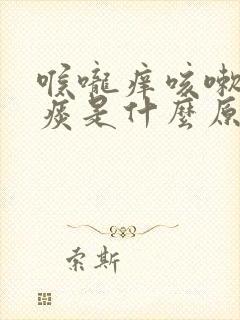 喉嚨痒咳嗽
痰是什麼原
索斯